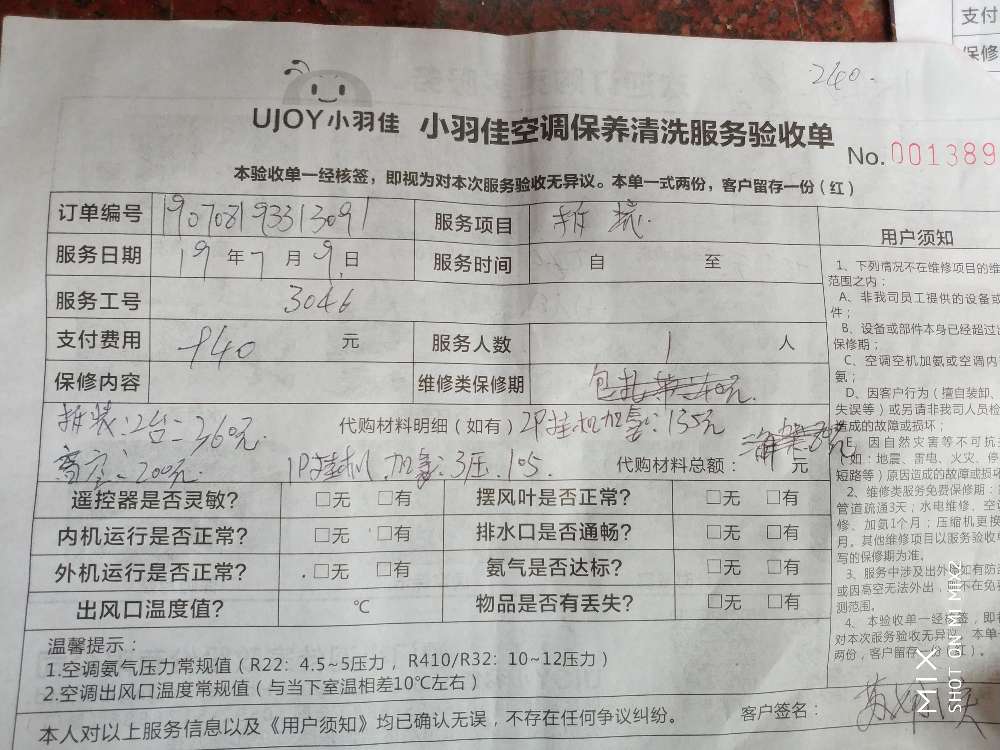 支付
保修
240.
UJOY小羽佳 小羽佳空调保养清洗服务验收单
No. 001389
本验收单一经核签，即视为对本次服务验收无异议。本单一式两份，客户留存一份（红）
订单编号 190708193313091 服务项目 拆装.
服务日期 19年7月9日 服务时间 自 至
服务工号 3046
支付费用 940 元 服务人数 1 人
保修内容 维修类保修期
拆装：2台=360元. 代购材料明细（如有）2P挂机加氨：135元
高空：200元. 1P挂机加氨：3压.105. 代购材料总额： 元
遥控器是否灵敏？ □无 □有 摆风叶是否正常？ □无 □有
内机运行是否正常？ □无 □有 排水口是否通畅？ □无 □有
外机运行是否正常？ □无 □有 氨气是否达标？ □无 □有
出风口温度值？ ℃ 物品是否有丢失？ □无 □有
温馨提示：
1.空调氨气压力常规值（R22：4.5~5压力，R410/R32：10~12压力）
2.空调出风口温度常规值（与当下室温相差10℃左右）
本人对以上服务信息以及《用户须知》均已确认无误，不存在任何争议纠纷。 客户签名：
用户须知
1、下列情况不在维修项目的维
范围之内：
A、非我司员工提供的设备或
件；
B、设备或部件本身已经超过出
保修期；
C、空调空机加氨或空调内
氨；
D、因客户行为（擅自装卸、
失误等）或另请非我司人员检
造成的故障或损坏；
E、因自然灾害等不可抗
（如：地震、雷电、火灾、停
短路等）原因造成的故障或损坏
2、维修类服务免费保修期：
管道疏通3天；水电维修、空
修、加氨1个月；压缩机更换
月。其他维修项目以服务验收单
写的保修期为准。
3、服务中涉及出外 如有防
或因高空无法外出， 不在免
测范围。
4、本验收单一经 签，即
对本次服务验收无异议。本单
两份，客户留存一份（红）。
MIX
SHOT ON MI MIX